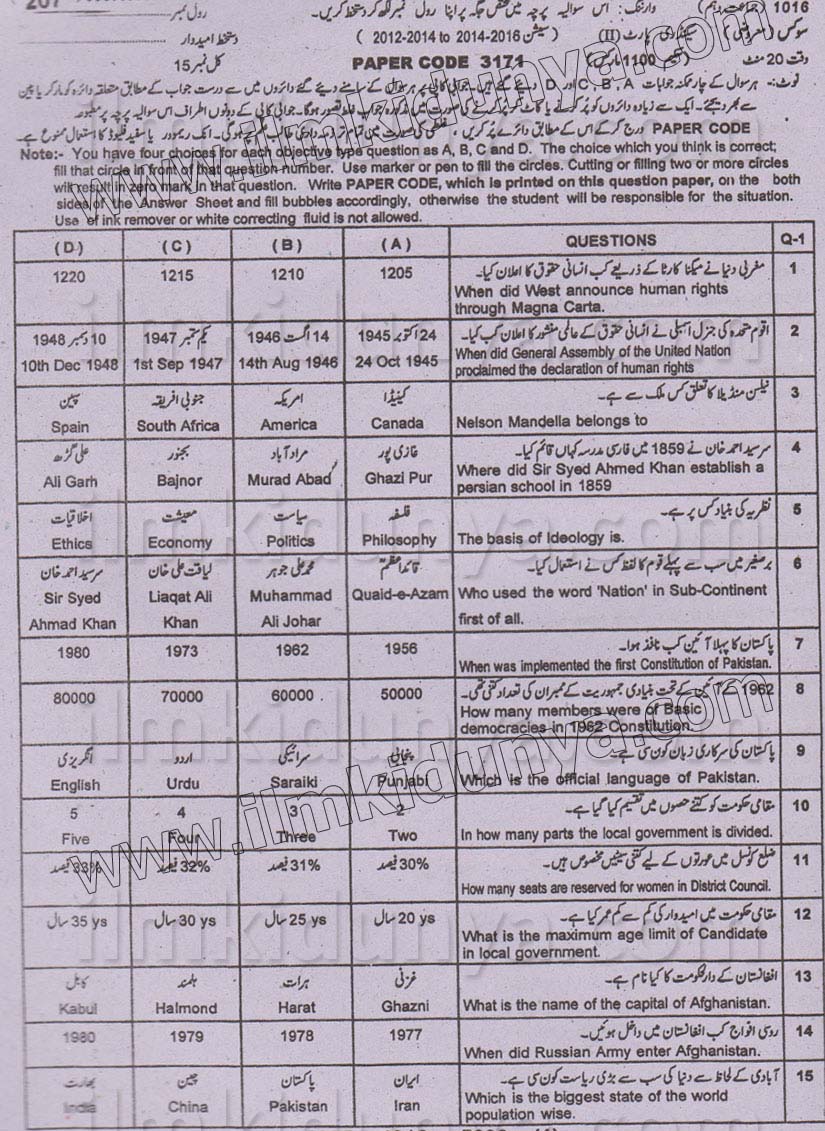 رول نمبر ــــــ وارننگ:۔ اس سوالیہ پرچہ میں مختص جگہ پر اپنا رول نمبر لکھ کر دستخط کریں۔ (جماعت دہم) 1016
دستخط امیدوار ــــــ (سیشن 2014-2016 to 2012-2014) سیکنڈری پارٹ (II) سوکس (معروضی)
کل نمبر 15 PAPER CODE 3171 وقت 20 منٹ
PAPER CODE
Note:- You have four choices for each objective type question as A, B, C and D. The choice which you think is correct;
fill that circle in front of that question number. Use marker or pen to fill the circles. Cutting or filling two or more circles
will result in zero mark in that question. Write PAPER CODE, which is printed on this question paper, on the both
sides of the Answer Sheet and fill bubbles accordingly, otherwise the student will be responsible for the situation.
Use of ink remover or white correcting fluid is not allowed.
( D ) ( C ) ( B ) ( A ) QUESTIONS Q-1
1220 1215 1210 1205 مغربی دنیا نے میگنا کارٹا کے ذریعے کب انسانی حقوق کا اعلان کیا۔ 1
When did West announce human rights
through Magna Carta.
10 دسمبر 1948 یکم ستمبر 1947 14 اگست 1946 24 اکتوبر 1945 اقوام متحدہ کی جنرل اسمبلی نے انسانی حقوق کے عالمی منشور کا اعلان کب کیا۔ 2
10th Dec 1948 1st Sep 1947 14th Aug 1946 24 Oct 1945 When did General Assembly of the United Nation
proclaimed the declaration of human rights
سپین جنوبی افریقہ امریکہ کینیڈا نیلسن منڈیلا کا تعلق کس ملک سے ہے۔ 3
Spain South Africa America Canada Nelson Mandella belongs to
علی گڑھ بجنور مراد آباد غازی پور سر سید احمد خان نے 1859 میں فارسی مدرسہ کہاں قائم کیا۔ 4
Ali Garh Bajnor Murad Abad Ghazi Pur Where did Sir Syed Ahmed Khan establish a
persian school in 1859
اخلاقیات معیشت سیاست فلسفہ نظریہ کی بنیاد کس پر ہے۔ 5
Ethics Economy Politics Philosophy The basis of Ideology is.
سر سید احمد خان لیاقت علی خان محمد علی جوہر قائد اعظم برصغیر میں سب سے پہلے قوم کا لفظ کس نے استعمال کیا۔ 6
Sir Syed Liaqat Ali Muhammad Quaid-e-Azam Who used the word 'Nation' in Sub-Continent
Ahmad Khan Khan Ali Johar first of all.
1980 1973 1962 1956 پاکستان کا پہلا آئین کب نافذ ہوا۔ 7
When was implemented the first Constitution of Pakistan.
80000 70000 60000 50000 1962 کے آئین کے تحت بنیادی جمہوریت کے ممبران کی تعداد کتنی تھی۔ 8
How many members were of Basic
democracies in 1962 Constitution.
انگریزی اردو سرائیکی پنجابی پاکستان کی سرکاری زبان کون سی ہے۔ 9
English Urdu Saraiki Punjabi Which is the official language of Pakistan.
5 4 3 2 مقامی حکومت کو کتنے حصوں میں تقسیم کیا گیا ہے۔ 10
Five Four Three Two In how many parts the local government is divided.
33% فیصد 32% فیصد 31% فیصد 30% فیصد ضلع کونسل میں عورتوں کے لیے کتنی سیٹیں مخصوص ہیں۔ 11
How many seats are reserved for women in District Council.
35 ys سال 30 ys سال 25 ys سال 20 ys سال مقامی حکومت میں امیدوار کی کم سے کم عمر کیا ہے۔ 12
What is the maximum age limit of Candidate
in local government.
کابل ہلمند ہرات غزنی افغانستان کے دارلحکومت کا کیا نام ہے۔ 13
Kabul Halmond Harat Ghazni What is the name of the capital of Afghanistan.
1980 1979 1978 1977 روسی افواج کب افغانستان میں داخل ہوئیں۔ 14
When did Russian Army enter Afghanistan.
بھارت چین پاکستان ایران آبادی کے لحاظ سے دنیا کی سب سے بڑی ریاست کون سی ہے۔ 15
India China Pakistan Iran Which is the biggest state of the world
population wise.
www.ilmkidunya.com
www.ilmkidunya.com